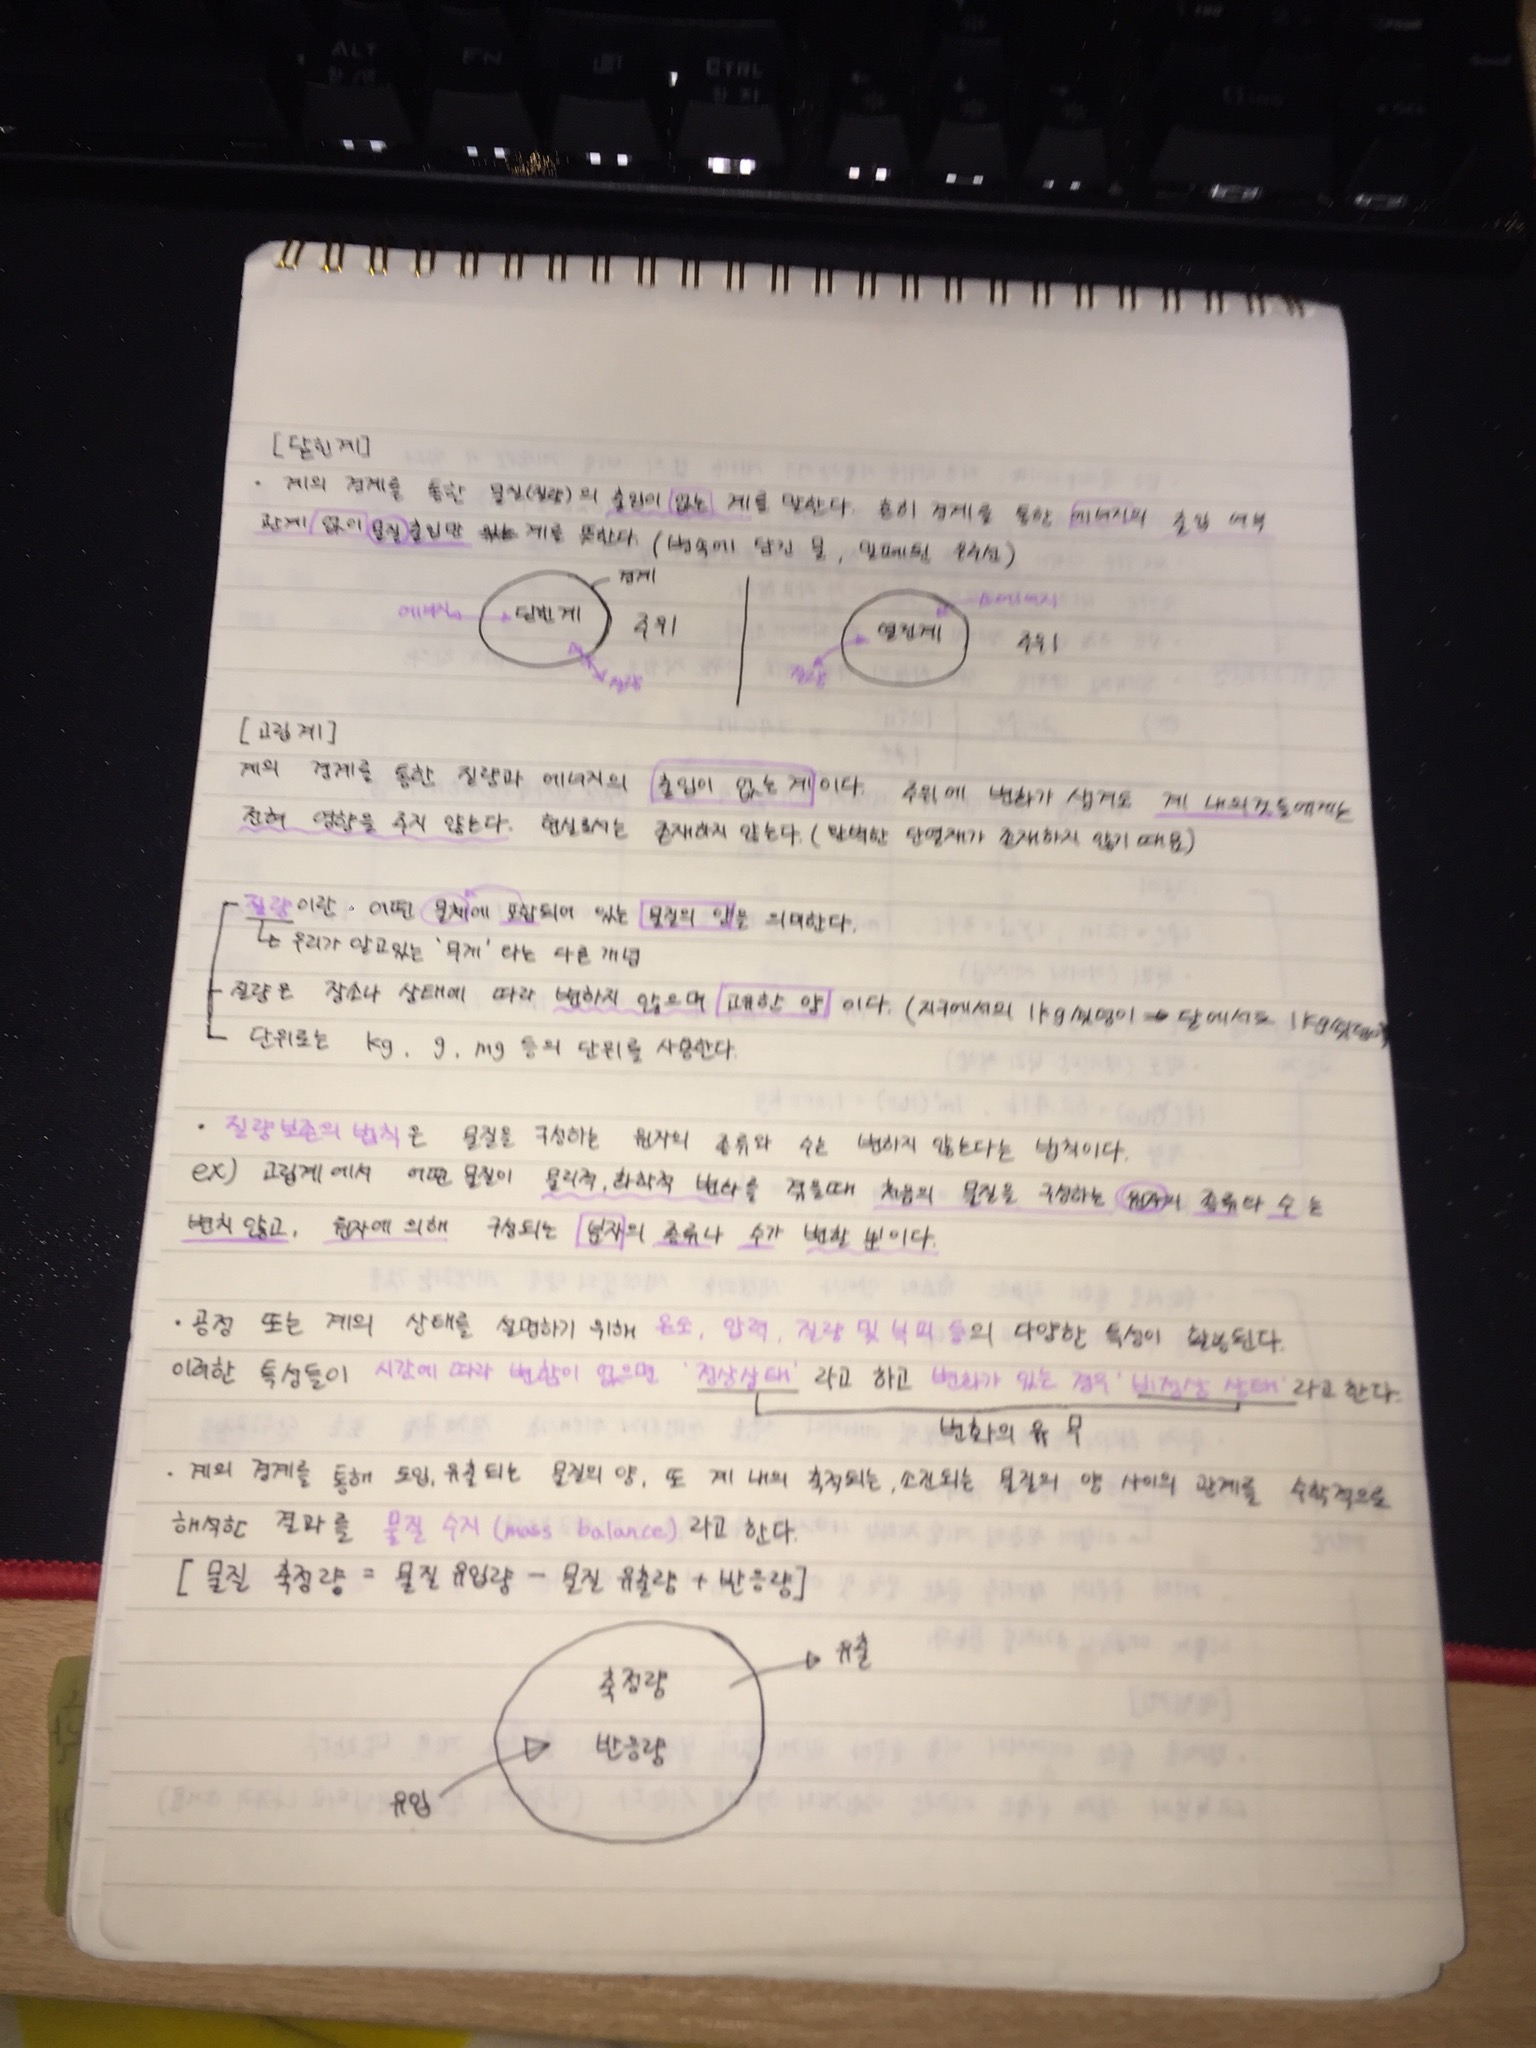 ALT
FN
CTRL
한자
[닫힌계]
· 계의 경계를 통한 물질(질량)의 출입이 없는 계를 말한다. 흔히 경계를 통한 에너지의 출입 여부
관계 없이 물질 출입만 없는 계를 뜻한다. (병속에 담긴 물, 밀폐된
경계
에너지 닫힌계 주위
질량
열린계 주위
에너지
질량
[고립계]
계의 경계를 통한 질량과 에너지의 출입이 없는 계이다. 주위에 변화가 생겨도 계 내의것들에게는
전혀 영향을 주지 않는다. 현실로서는 존재하지 않는다. (완벽한 단열재가 존재하지 않기 때문)
질량이란 · 어떤 물체에 포함되어 있는 물질의 양을 의미한다.
우리가 알고있는 '무게' 라는 다른 개념
질량은 장소나 상태에 따라 변하지 않으며 고유한 양 이다. (지구에서의 1kg 쇳덩이 → 달에서도 1kg 쇳덩이
단위로는 kg, g, mg 등의 단위를 사용한다.
· 질량보존의 법칙은 물질을 구성하는 원자의 종류와 수는 변하지 않는다는 법칙이다.
ex) 고립계에서 어떤 물질이 물리적, 화학적 변화를 겪을때 처음의 물질을 구성하는 원자의 종류다 수는
변치 않고, 원자에 의해 구성되는 분자의 종류나 수가 변할 뿐이다.
· 공정 또는 계의 상태를 설명하기 위해 온도, 압력, 질량 및 부피 등의 다양한 특성이 활용된다.
이러한 특성들이 시간에 따라 변함이 없으면 '정상상태' 라고 하고 변화가 있는 경우 '비정상 상태' 라고 한다.
변화의 유 무
· 계의 경계를 통해 도입, 유출되는 물질의 양, 또 계 내의 축적되는, 소진되는 물질의 양 사이의 관계를 수학적으로
해석한 결과를 물질 수지 (mass balance) 라고 한다.
[물질 축정량 = 물질 유입량 - 물질 유출량 + 반응량]
유출
축정량
반응량
유입